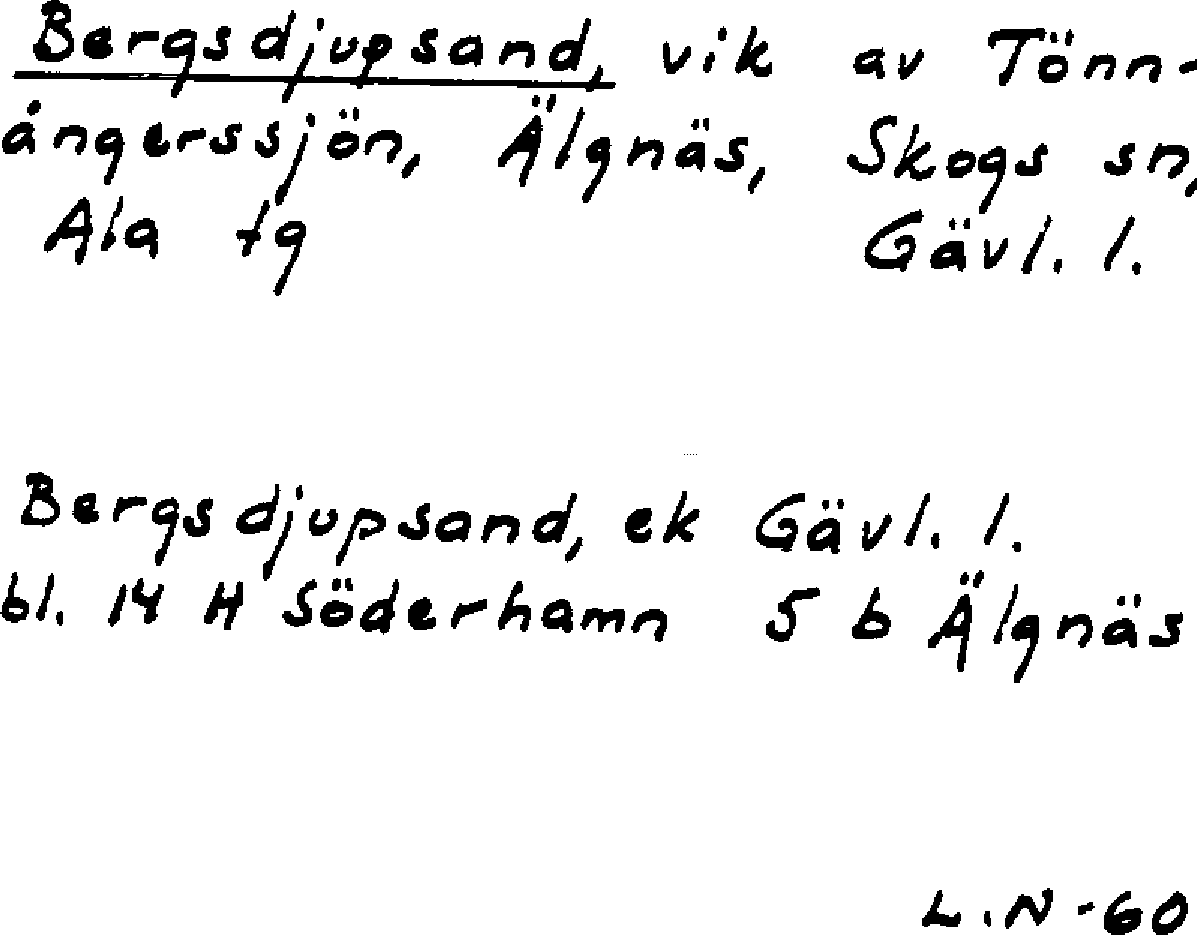 Bergsdjupsand, vik av Tönn-
ångerssjön, Älgnäs, Skogs sn,
Ala tg Gävl. l.
Bergsdjupsand, ek Gävl. l.
bl. 14 H Söderhamn 5 b Älgnäs
L.N-60